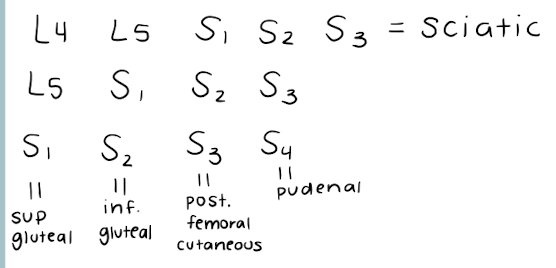 L4 L5 S1 S2 S3 = Sciatic
L5 S1 S2 S3
S1 S2 S3 S4
|| || || ||
sup gluteal
inf. gluteal
post. femoral cutaneous
pudenal